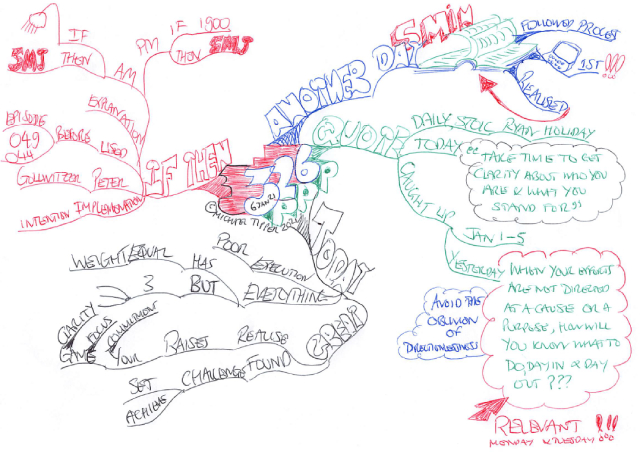 IF
5MJ
THEN
AM
PM
IF 1900
THEN 5MJ
EXPLANATION
EPISODE
049
044
BEFORE
USED
GOLLWITZER PETER
INTENTION IMPLEMENTATION
IF THEN
326
6 JAN 21
©MICHAEL TIPPER 2021
ANOTHER DAY
5MIM
FOLLOWED PROCESS
1ST !!!
REALISED
QUOTE
DAILY, STOIC RYAN HOLIDAY
TODAY
"TAKE TIME TO GET
CLARITY ABOUT WHO YOU
ARE & WHAT YOU
STAND FOR"
CAUGHT UP
JAN 1-5
YESTERDAY
WHEN YOUR EFFORTS
ARE NOT DIRECTED
AT A CAUSE OR A
PURPOSE, HOW WILL
YOU KNOW WHAT TO
DO DAY IN & DAY
OUT ???
AVOID THE
OBLIVION
OF
DIRECTIONLESSNESS
RELEVANT !!!
MONDAY & TUESDAY
TODAY
GREAT
POOR EXECUTION
WEIGHT EQUAL HAS EVERYTHING
3 BUT
CLARITY
FOCUS
COMMITMENT
GAME YOUR RAISES REALISE
SET CHALLENGES FOUND
ACHIEVE